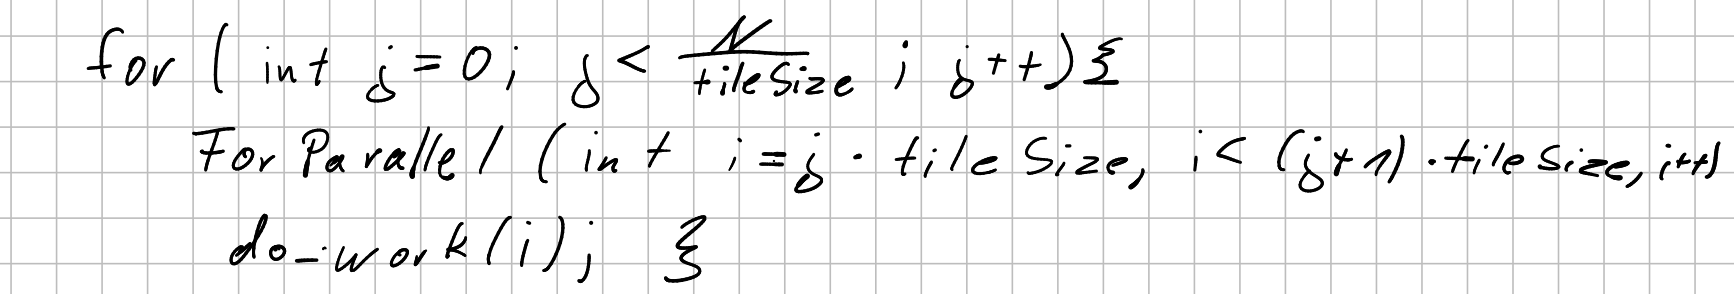 for ( int j = 0; j < N/tileSize ; j++) {
For Parallel (int i = j · tileSize, i < (j+1) · tileSize, i++)
do_work(i); }